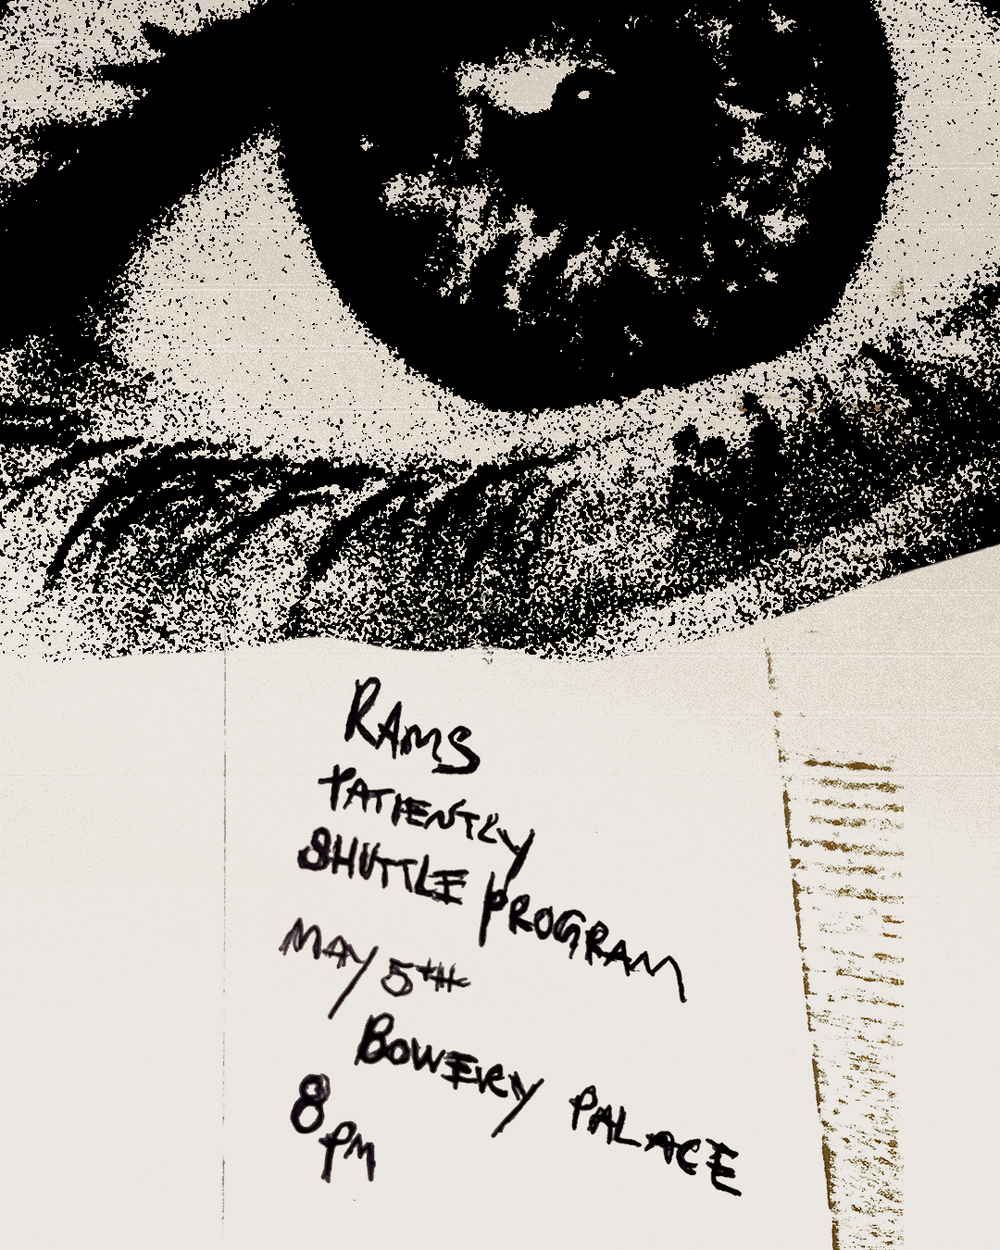 RAMS
PATIENTLY
SHUTTLE PROGRAM
MAY 5TH
BOWERY PALACE
8PM